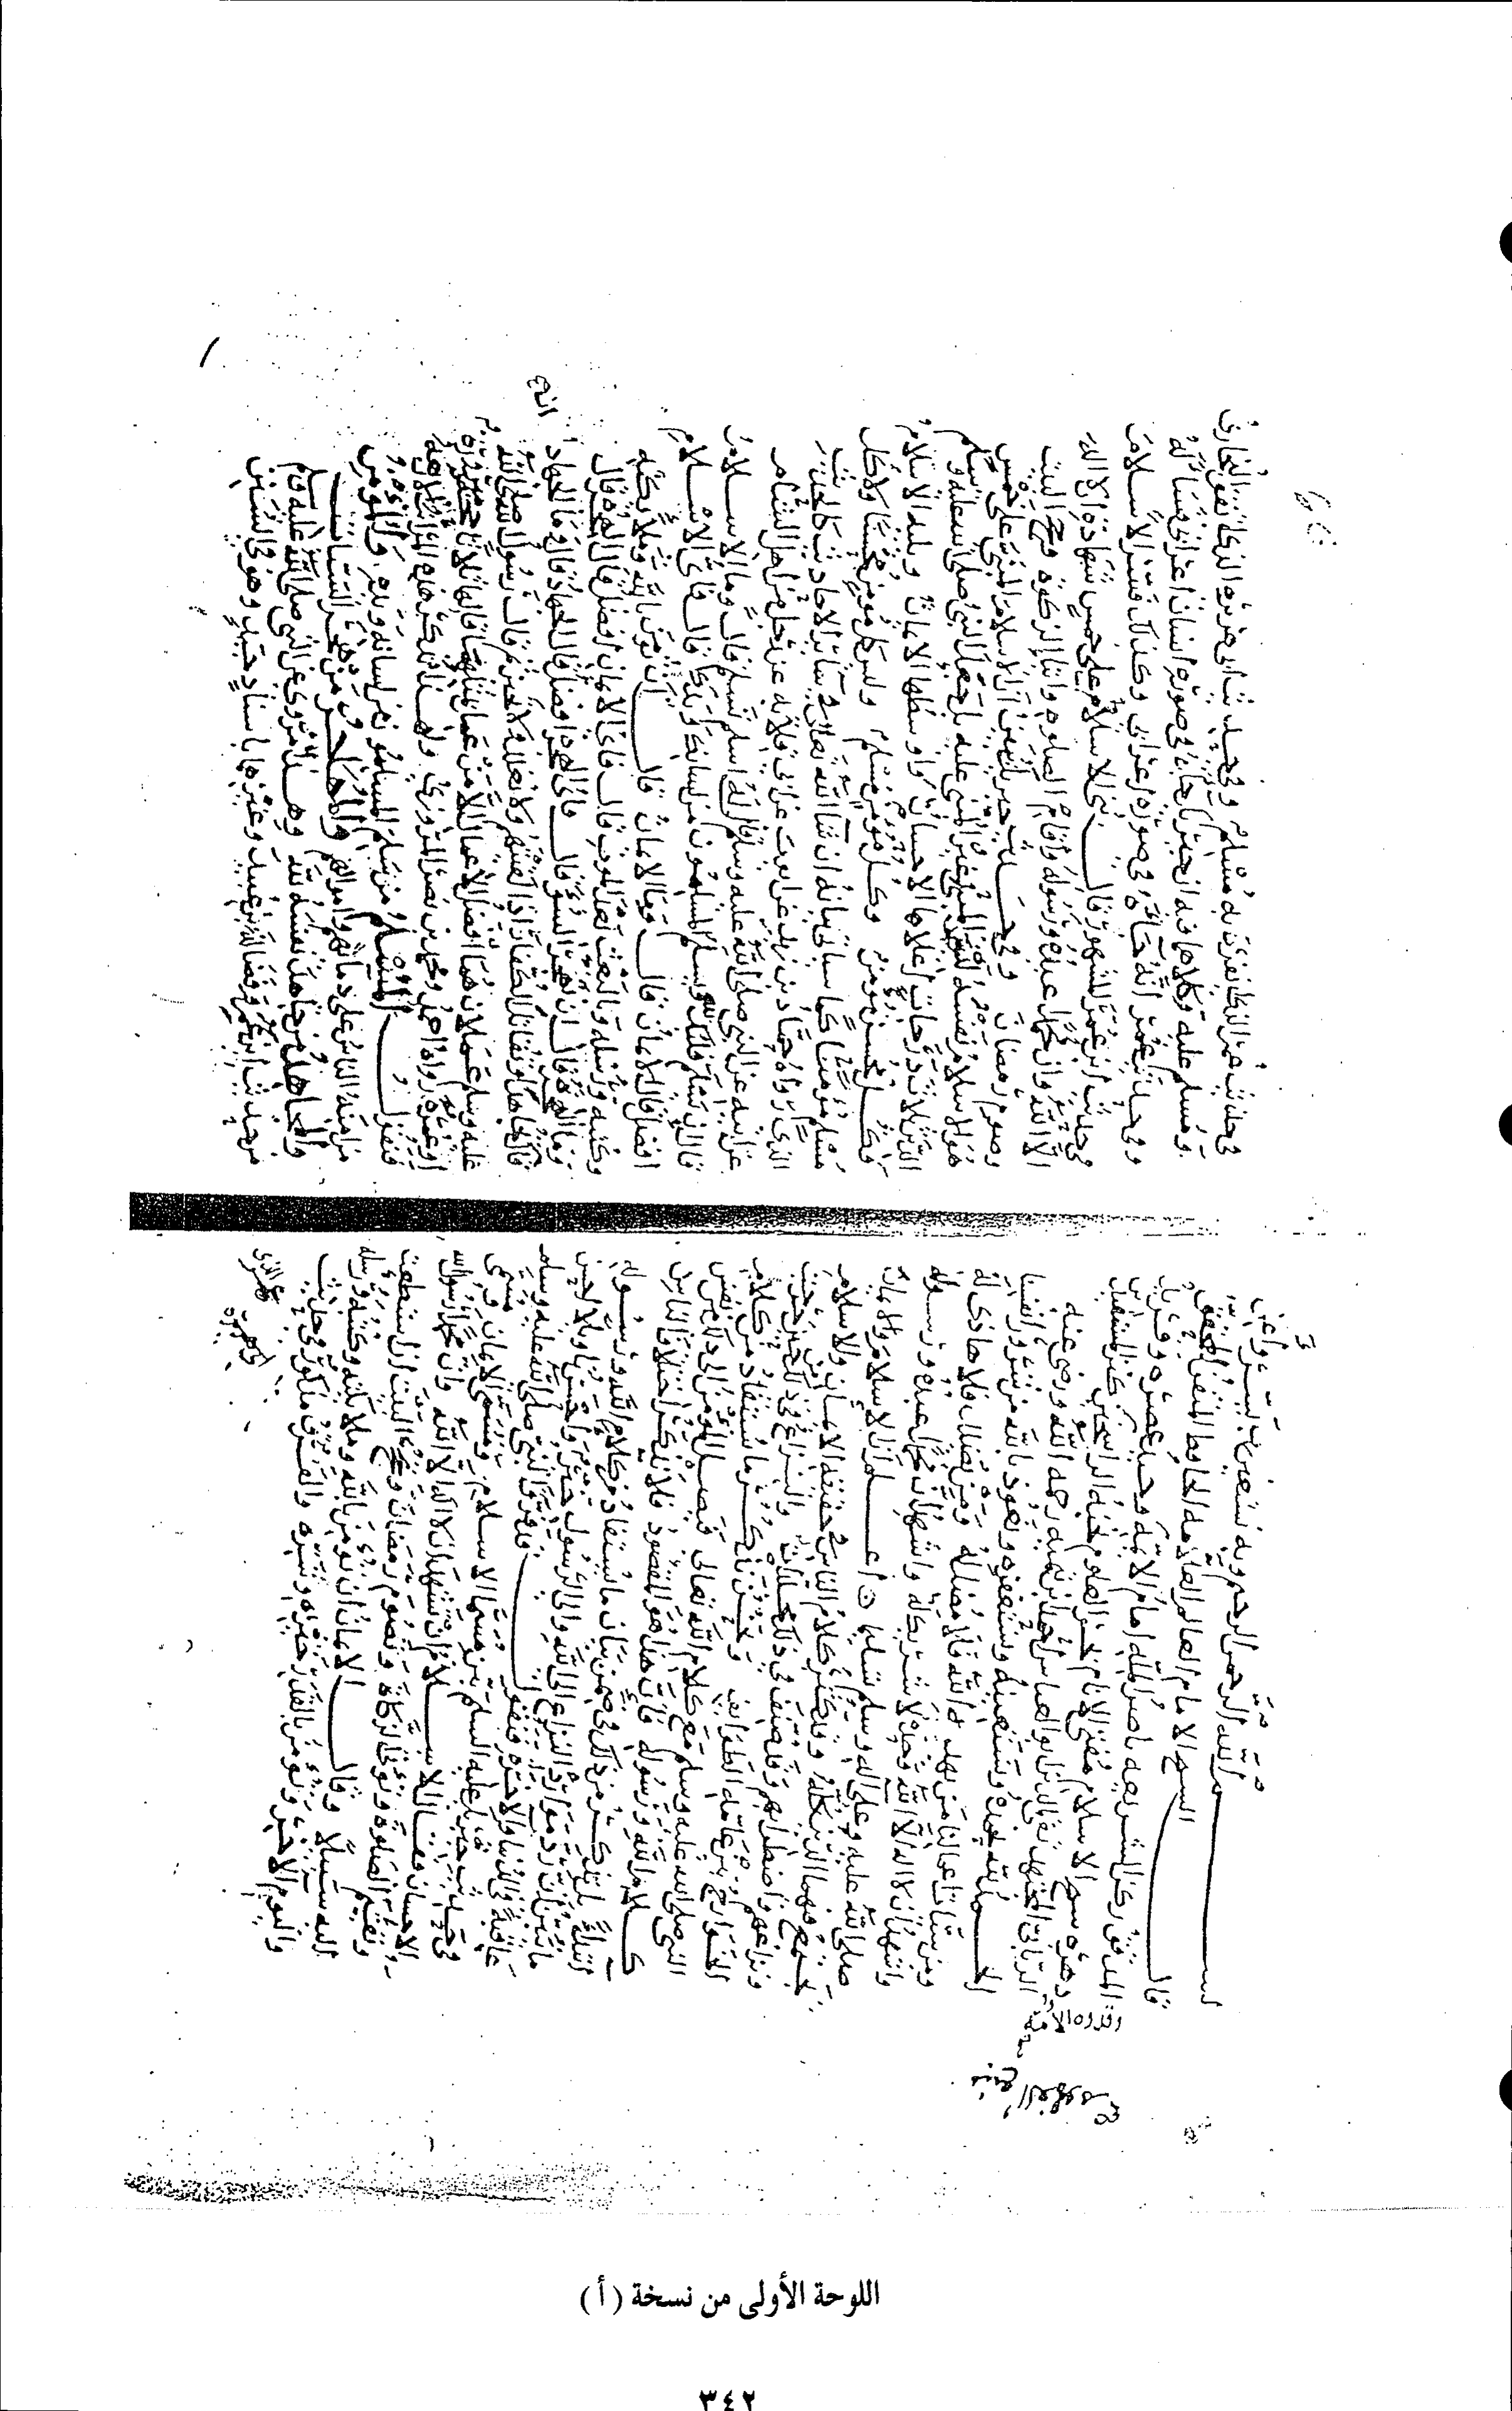 بسم الله الرحمن الرحيم وبه نستعين رب يسر وأعن
قال الشيخ الامام العالم العلامة الحافظ المتقن المحقق
المدقق ركن الشريعة ناصر الملة امام الأئمة وحيد عصره وفريد
دهره شيخ الاسلام مفتي الانام بحر العلوم لسان
الرباني المجتهد تقي الدين ابو العباس احمد بن تيمية رحمه الله ورضي عنه
الحمد لله نحمده ونستعينه ونستغفره ونعوذ بالله من شرور أنفسنا
ومن سيئات اعمالنا من يهد الله فلا مضل له ومن يضلل فلا هادي له
واشهد ان لا اله الا الله وحده لا شريك له واشهد ان محمدا عبده ورسوله
صلى الله عليه وعلى اله وسلم تسليما اعلم ان الاسلام والايمان
يجتمع فيهما الدين كله وقد كثر كلام الناس في حقيقة الايمان والاسلام
ونزاعهم واضطرابهم وقد صنف في ذلك مجلدات والنزاع في ذلك من حين خرجت
الخوارج بين عامة الطوائف ونحن نذكر ما يستفاد من كلام
النبي صلى الله عليه وسلم مع كلام الله تعالى فيصل المؤمن الى ذلك من نفس
كلام الله ورسوله فان هذا هو المقصود فلا نذكر اختلاف الناس
ابتداء بل نذكر من ذلك في ضمن بيان ما يستفاد من كلام الله ورسوله
ما يبين ان رد موارد النزاع الى الله والى الرسول خير واحسن تأويلا واحسن
عاقبة في الدنيا والاخرة فنقول قد فرق النبي صلى الله عليه وسلم
في حديث جبريل عليه السلم بين مسمى الاسلام ومسمى الايمان ومسمى
الاحسان فقال الاسلام ان تشهد ان لا اله الا الله وان محمدا رسول الله
وتقيم الصلوة وتؤتي الزكاة وتصوم رمضان وتحج البيت ان استطعت
اليه سبيلا وقال الايمان ان تؤمن بالله وملائكته وكتبه ورسله
واليوم الاخر وتؤمن بالقدر خيره وشره والفرق مذكور في حديث
عمر الذي
في حديث عمر الذي انفرد به مسلم وفي حديث ابي هريرة الذي اتفق البخاري
ومسلم عليه وكلاهما فيه ان جبريل جاءه في صورة انسان اعرابي فسأله
وفي حديث عمر انه جاءه في صورة اعرابي وكذلك فسر الاسلام
في حديث ابن عمر المشهور قال بني الاسلام على خمس شهادة ان لا اله
الا الله وان محمدا عبده ورسوله واقام الصلوة وايتاء الزكوة وحج البيت
وصوم رمضان وحديث جبريل يبين ان الاسلام المبني على خمس
هو الاسلام نفسه ليس المبني غير المبني عليه بل جعل النبي صلى الله عليه وسلم
الدين ثلاث درجات اعلاها الاحسان واوسطها الايمان ويليه الاسلام
فكل محسن مؤمن وكل مؤمن مسلم وليس كل مؤمن محسنا ولا كل
مسلم مؤمنا كما سيأتي بيانه ان شاء الله تعالى في سائر الاحاديث كالحديث
الذي رواه حماد بن زيد عن ايوب عن ابي قلابة عن رجل من اهل الشام
عن ابيه عن النبي صلى الله عليه وسلم قال له اسلم تسلم قال وما الاسلام
قال ان تسلم قلبك لله ويسلم المسلمون من لسانك ويدك قال فاي الاسلام
افضل قال الايمان قال وما الايمان قال ان تؤمن بالله وملائكته
وكتبه ورسله وبالبعث بعد الموت قال فاي الايمان افضل قال الهجرة قال
وما الهجرة قال ان تهجر السوء قال فاي الهجرة افضل قال الجهاد قال وما الجهاد
قال ان تجاهد او تقاتل الكفار اذا لقيتهم ولا تغلل ولا تجبن ثم قال رسول الله صلى الله
عليه وسلم عملان هما افضل الاعمال الا من عمل بمثلهما قالها ثلاثا حجة مبرورة
او عمرة رواه احمد ومحمد بن نصر المروزي ولهذا يذكر هذه المراتب الاربعة
فيقول المسلم من سلم المسلمون من لسانه ويده والمؤمن
من امنه الناس على دمائهم واموالهم والمهاجر من هجر السيئات
والمجاهد من جاهد نفسه لله وهذا مروي عن النبي صلى الله عليه وسلم
من حديث عبد الله بن عمرو وفضالة بن عبيد وغيرهما باسناد جيد وهو في السنن
اللوحة الأولى من نسخة (أ)
٣٤٢